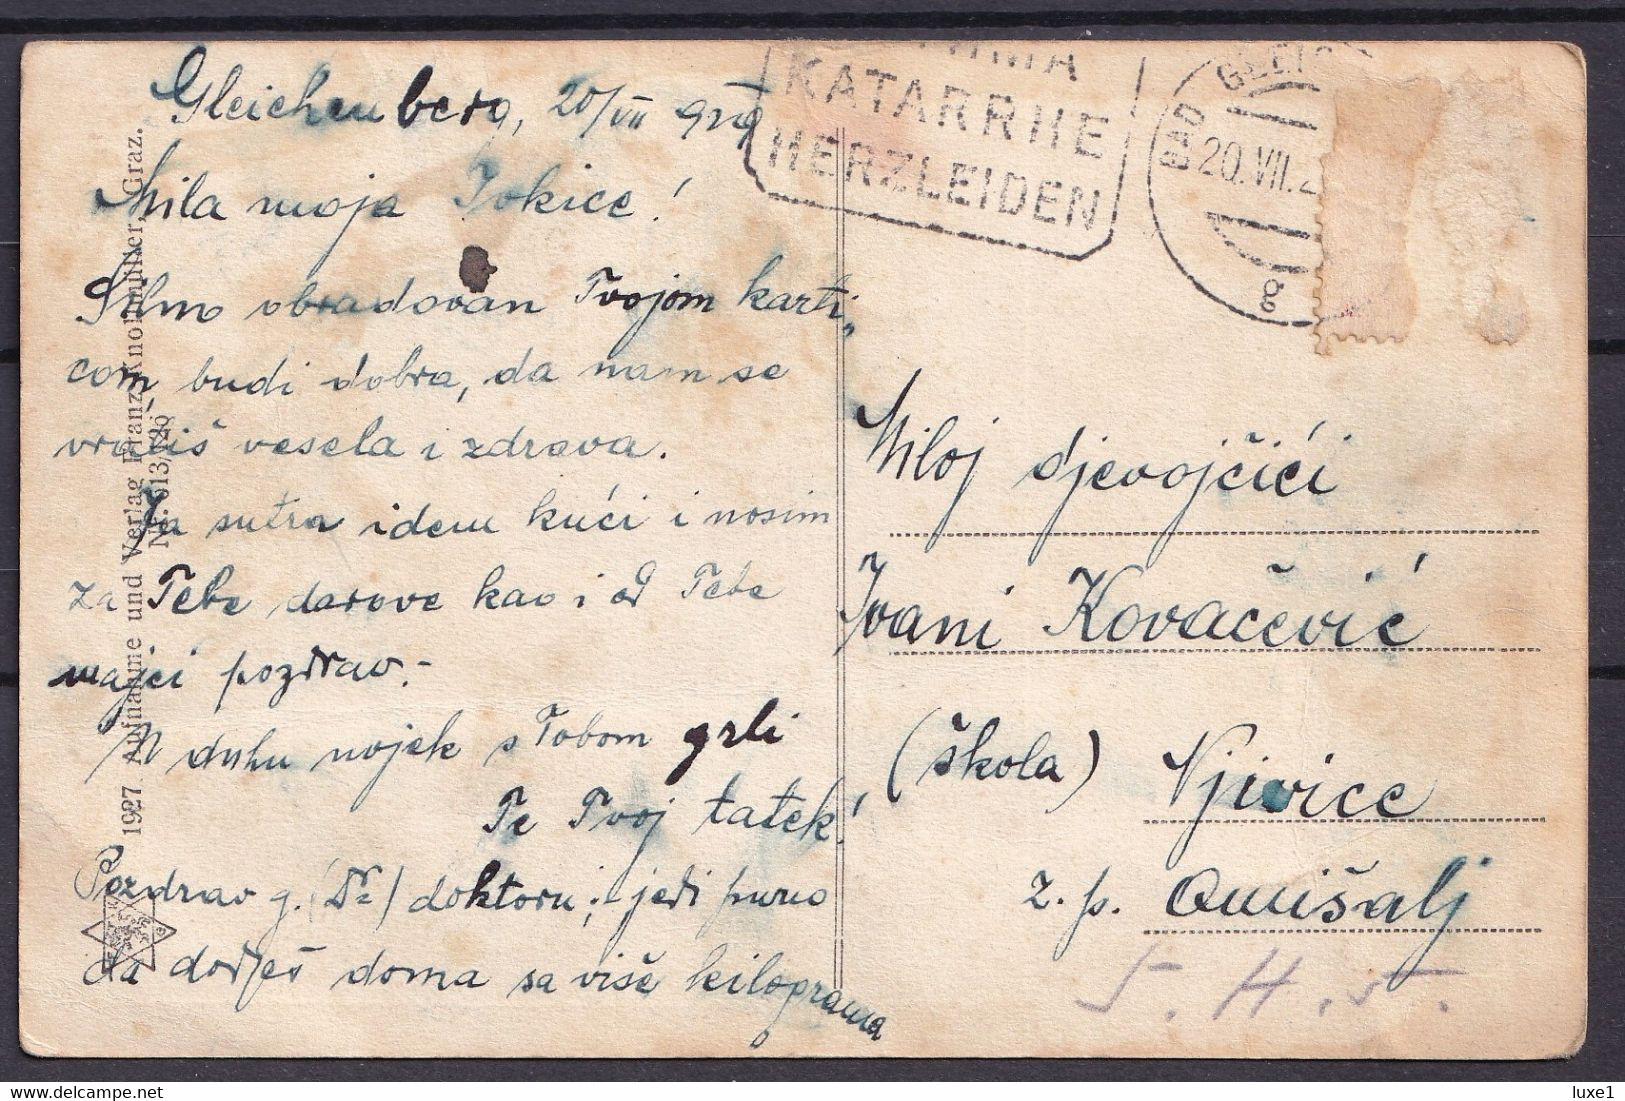 Gleichenberg, 20/VII 929
Mila moja Ivkice!
Silno obradovan Tvojom karti„
com, budi dobra, da nam se
vratiš vesela i zdrava.
Ja sutra idem kući i nosim
za Tebe darove kao i od Tebe
majci pozdrav.-
U duhu uvjek s Tobom grli
Te Tvoj tatek!
Pozdrav g. (Dr) doktoru; jedi puno
da dodješ doma sa više kilograma
1927. Aufnahme und Verlag Franz Knollmüller Graz.
KATARRHE
HERZLEIDEN
BAD GLEICH
20.VII.2
8
Miloj djevojčići
Ivani Kovačević
(škola) Njivice
z. p. Omišalj
S. H. S.
luxe1